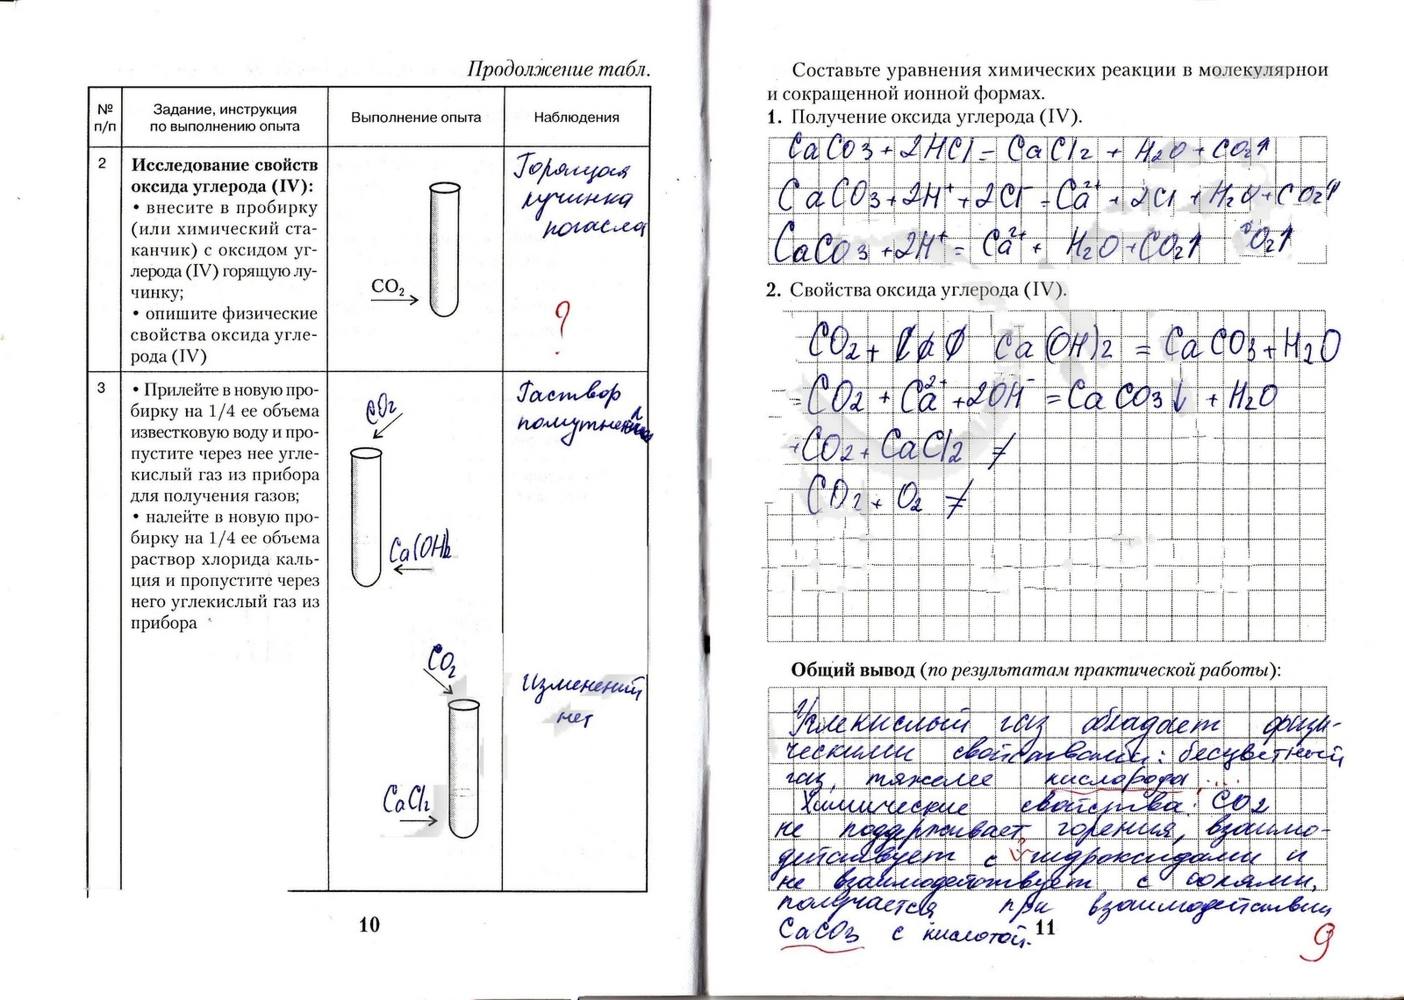 Продолжение табл.
№ п/п
Задание, инструкция
по выполнению опыта
Выполнение опыта
Наблюдения
2
Исследование свойств
оксида углерода (IV):
• внесите в пробирку
(или химический ста-
канчик) с оксидом уг-
лерода (IV) горящую лу-
чинку;
• опишите физические
свойства оксида угле-
рода (IV)
CO₂
Горящая
лучинка
погасла
?
3
• Прилейте в новую про-
бирку на 1/4 ее объема
известковую воду и про-
пустите через нее угле-
кислый газ из прибора
для получения газов;
• налейте в новую про-
бирку на 1/4 ее объема
раствор хлорида каль-
ция и пропустите через
него углекислый газ из
прибора
CO₂
Ca(OH)₂
Раствор
CO₂
CaCl₂
Изменений
нет
10
Составьте уравнения химических реакции в молекулярнои
и сокращенной ионной формах.
1. Получение оксида углерода (IV).
CaCO₃ + 2HCl = CaCl₂ + H₂O + CO₂↑
CaCO₃ + 2H⁺ + 2Cl⁻ = Ca²⁺ + 2Cl + H₂O + CO₂↑
CaCO₃ + 2H⁺ = Ca²⁺ + H₂O + CO₂↑ O₂↑
2. Свойства оксида углерода (IV).
CO₂ + Ca(OH)₂ = CaCO₃ + H₂O
CO₂ + Ca²⁺ + 2OH⁻ = CaCO₃↓ + H₂O
CO₂ + CaCl₂ ≠
CO₂ + O₂ ≠
Общий вывод (по результатам практической работы):
Углекислый газ обладает физи-
ческими свойствами: бесцветный
газ, тяжелее кислорода ...
Химические свойства: CO₂
не поддерживает горения, взаимо-
действует с гидроксидами и
не взаимодействует с солями,
получается при взаимодействии
CaCO₃ с кислотой.
11
9